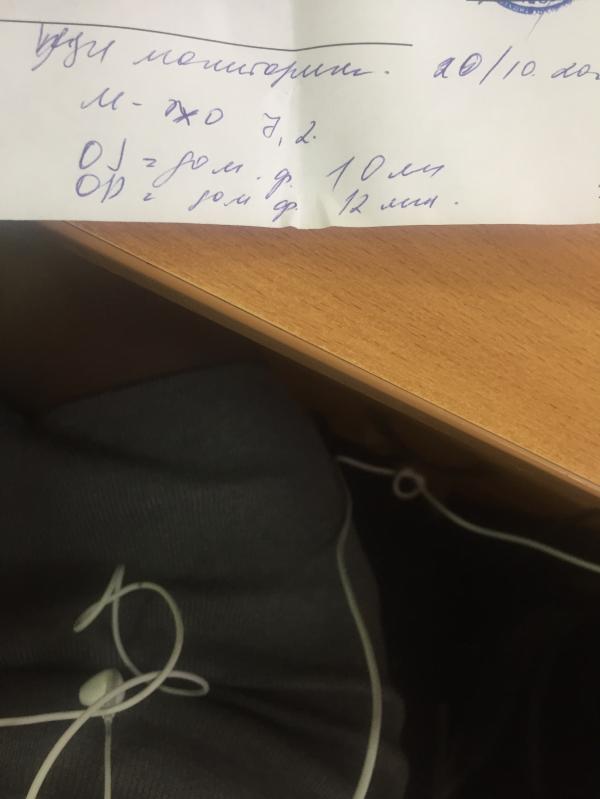 УЗИ мониторинг. 20/10.20
М-эхо 7,2.
OS = дом. ф. 10 мм
OD = дом ф. 12 мм.